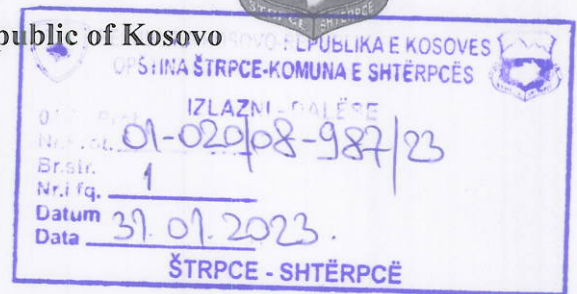 public of Kosovo
ŠTRPCE - SHTËRPCË
REPUBLIKA E KOSOVËS
OPŠTINA ŠTRPCE-KOMUNA E SHTËRPCËS
IZLAZNI - DALËSE
01-020/08-987/23
Br.str.
Nr.i fq. 1
Datum
Data 31.01.2023.
ŠTRPCE - SHTËRPCË